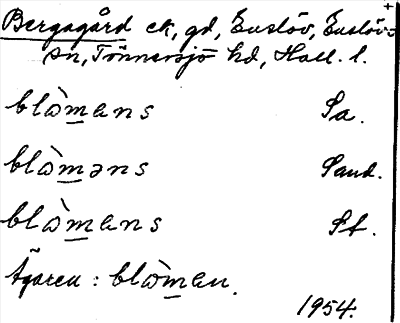 Bergagård ek, gd, Euslöv, Euslövs
sn, Tönnersjö hd, Hall. l.
blɷ̀mans Sa.
blɷ̀məns Sand.
blɷ̀mans St.
Ägaren : blɷ̀man.
1954.